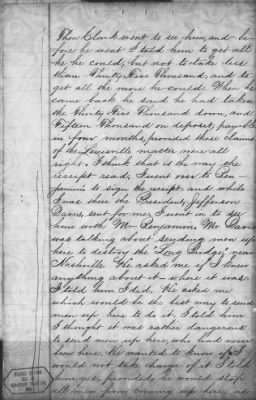 Then Clark went to see him, and be-
fore he went I told him to get all
he could, but not to take less
than Thirty Five Thousand, and to
get all the more he could. When he
came back he said he had taken
the Thirty Five Thousand down, and
Fifteen Thousand on deposit, payable
in four months, provided these claims
of the Louisville matter were all
right. I think that is the way the
receipt read. I went over to Ben-
jamin's to sign the receipt, and while
I was there the President, Jefferson
Davis, sent for me; I went in to see
him with Mr Benjamin. Mr Davis
was talking about sending men up
here to destroy the Long Bridge near
Nashville. He asked me if I knew
anything about it, where it was.
I told him I did. He asked me
which would be the best way to send
men up here to do it. I told him
I thought it was rather dangerous
to send men up here, who had never
been here. He wanted to know if I
would not take charge of it. I told
him yes, provided he would stop
all men from coming up here, as